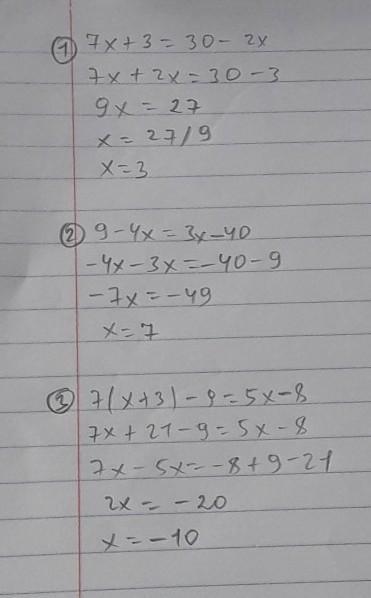 ① 7x+3=30-2x
7x+2x=30-3
9x=27
x=27/9
x=3
② 9-4x=3x-40
-4x-3x=-40-9
-7x=-49
x=7
③ 7(x+3)-9=5x-8
7x+21-9=5x-8
7x-5x=-8+9-21
2x=-20
x=-10